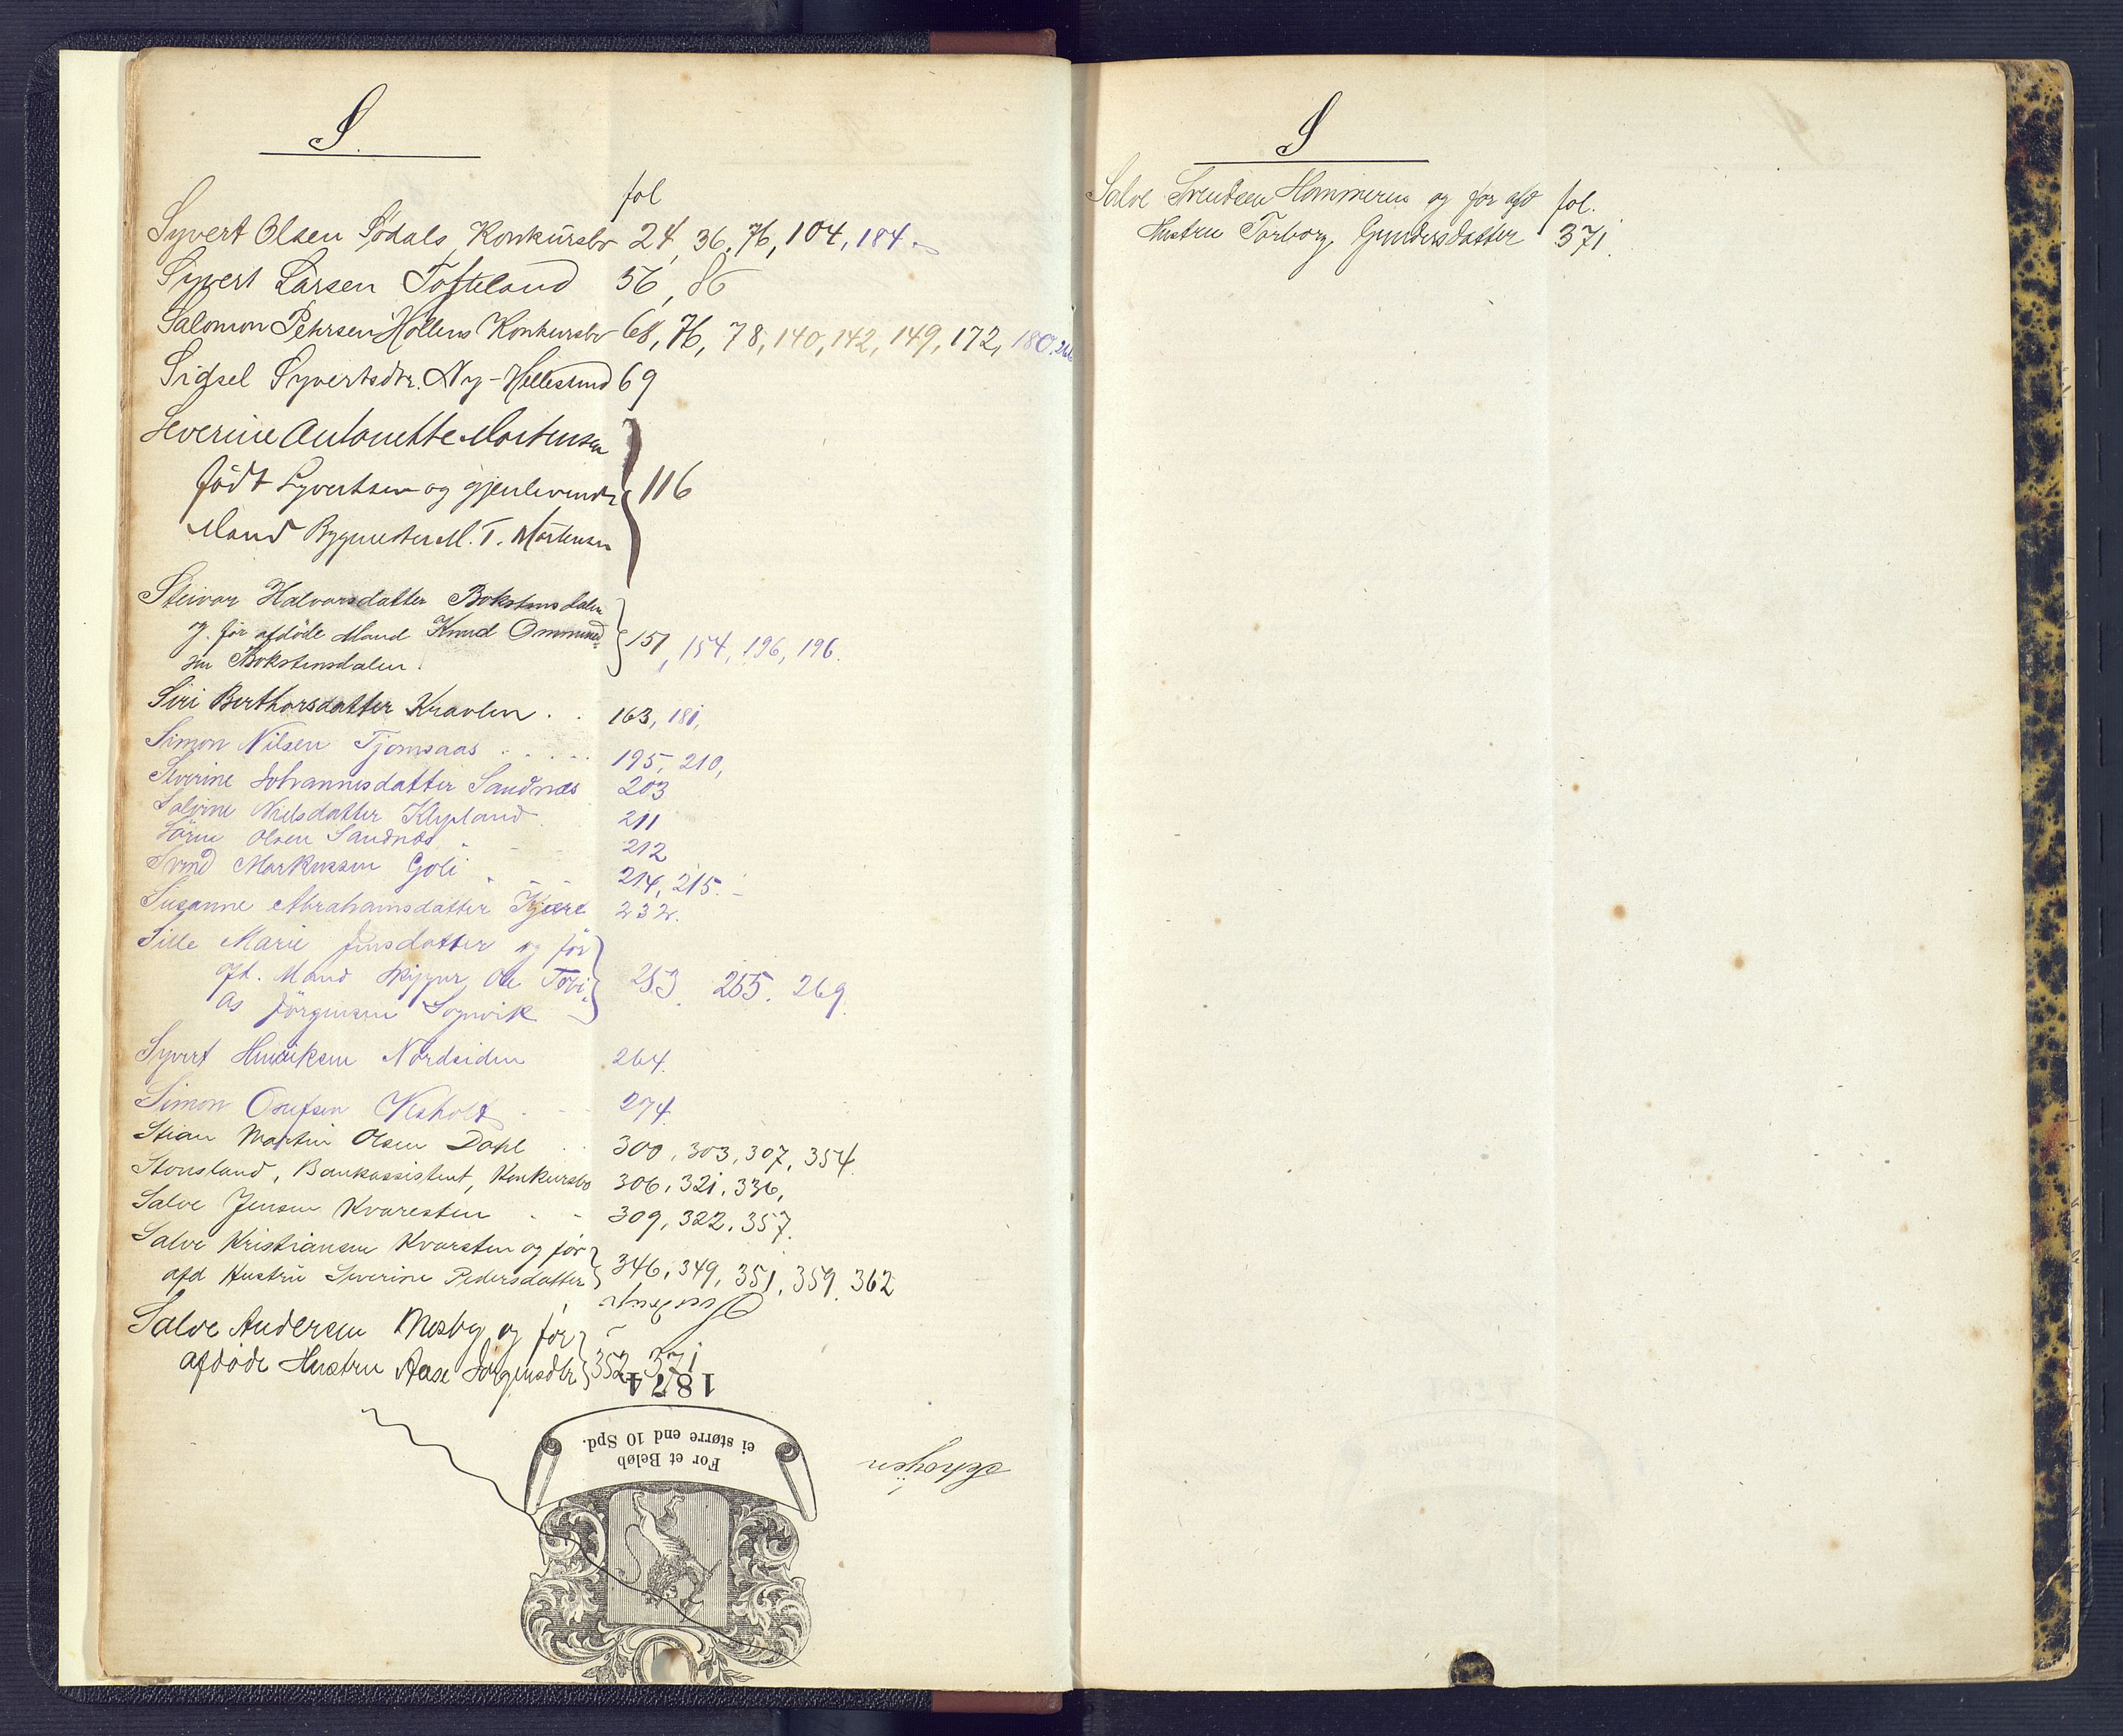 S.
fol
Syvert Olsen Sødals Konkursbo 24, 36, 76, 104, 184.
Syvert Larsen Tofteland 56, 86
Salomon Pehrsen Hollens Konkursbo 68, 76, 78, 140, 142, 149, 172, 180,
Sidsel Syvertsdtr. Ny-Hellesund 69
Severine Antonette Mortensen
født Syvertsen og gjenlevende 116
Mand Bygmester M. T. Mortensen
Steinar Halvorsdatter Bokstensdalen
og før afdöde Mand Knud Ommund-
sen Bokstensdalen. 151, 154, 196, 196.
Siri Berthorsdatter Kravlen . . 163, 181,
Simon Nilsen Tjomsaas . . . . . 195, 210,
Severine Johannesdatter Sandnæs 203
Salvine Nielsdatter Klepland 211
Sörine Olsen Sandnæs 212
Svend Markussen Goli 214, 215.
Susanne Abrahamsdatter Kjære 232.
Sille Marie Jensdatter og før
afd. Mand Skipper Ole Tobi- 253. 255. 269.
as Jörgensen Sognvik
Syvert Henriksen Nordsiden 264.
Simon Osufsen Vesholt 274.
Stian Martin Olsen Dahl 300, 303, 307, 354
Stousland, Bankassistent, Konkursbo 306, 321, 336,
Salve Jensen Kvaresten 309, 322, 357.
Salve Kristiansen Kvarsten og før
afd Hustru Severine Pedersdatter 346, 349, 351, 359, 362
Salve Andersen Mosby og før
afdöde Hustru Aase Jörgensdtr 352, 371
1874
For et Beløb
ei større end 10 Spd.
S
Salve Svendsen Hommeren og før afd fol.
Hustru Torborg Gundersdatter 371.